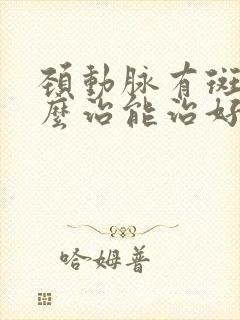 頸動脉有斑
麼治能治好
哈姆普